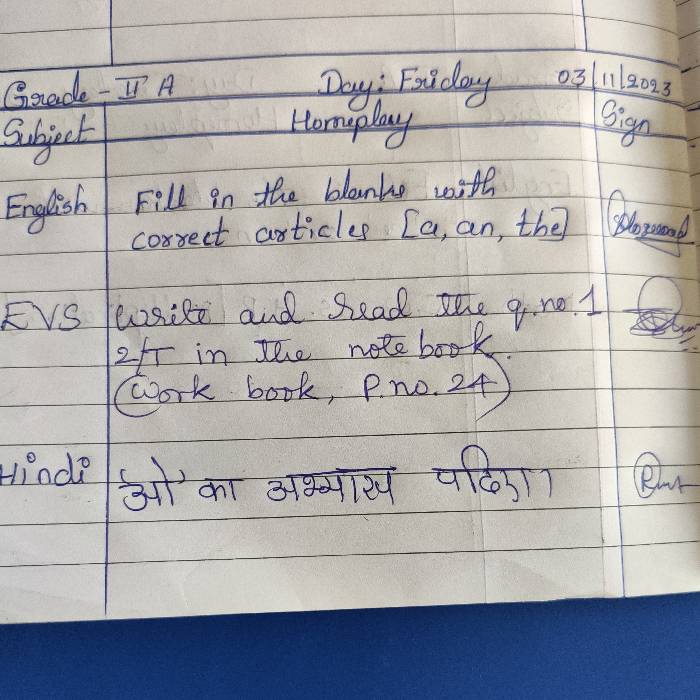 Grade - II A Day: Friday 03/11/2023
Subject Homeplay Sign
English Fill in the blanks with
correct articles [a, an, the]
EVS Write and Read the q. no. 1
2/T in the note book.
(Work book, P. no. 24)
Hindi 'ओ' का अभ्यास पढिए।